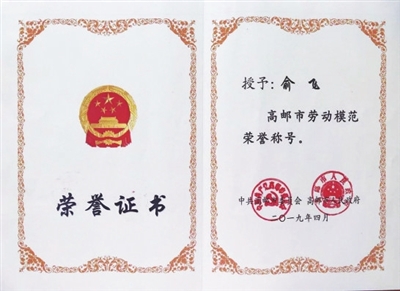 荣誉证书
授予：俞 飞
高邮市劳动模范
荣誉称号。
中共高邮市委员会 高邮市人民政府
二〇一九年四月